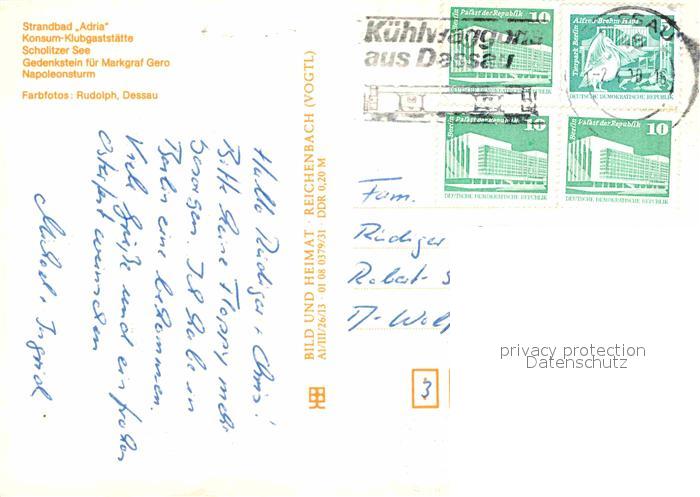 Strandbad „Adria"
Konsum-Klubgaststätte
Scholitzer See
Gedenkstein für Markgraf Gero
Napoleonsturm
Farbfotos: Rudolph, Dessau
Hallo Rüdiger + Chris!
Bitte keine Floppy mehr
besorgen. Ich habe in
Berlin eine bekommen.
Viele Grüße und ein frohes
Osterfest wünschen
Michael + Ingrid
BILD UND HEIMAT · REICHENBACH (VOGTL)
A1/III/26/13 · 01 08 0379/31 DDR 0,20 M
Kühlwaggons
aus Dessau
Berlin Palast der Republik 10
DEUTSCHE DEMOKRATISCHE REPUBLIK
Alfred-Brehm-Haus 5
Tierpark Berlin
DEUTSCHE DEMOKRATISCHE REPUBLIK
Berlin Palast der Republik 10
DEUTSCHE DEMOKRATISCHE REPUBLIK
Berlin Palast der Republik 10
DEUTSCHE DEMOKRATISCHE REPUBLIK
Fam.
Rüdiger
Robert-
3
privacy protection
Datenschutz